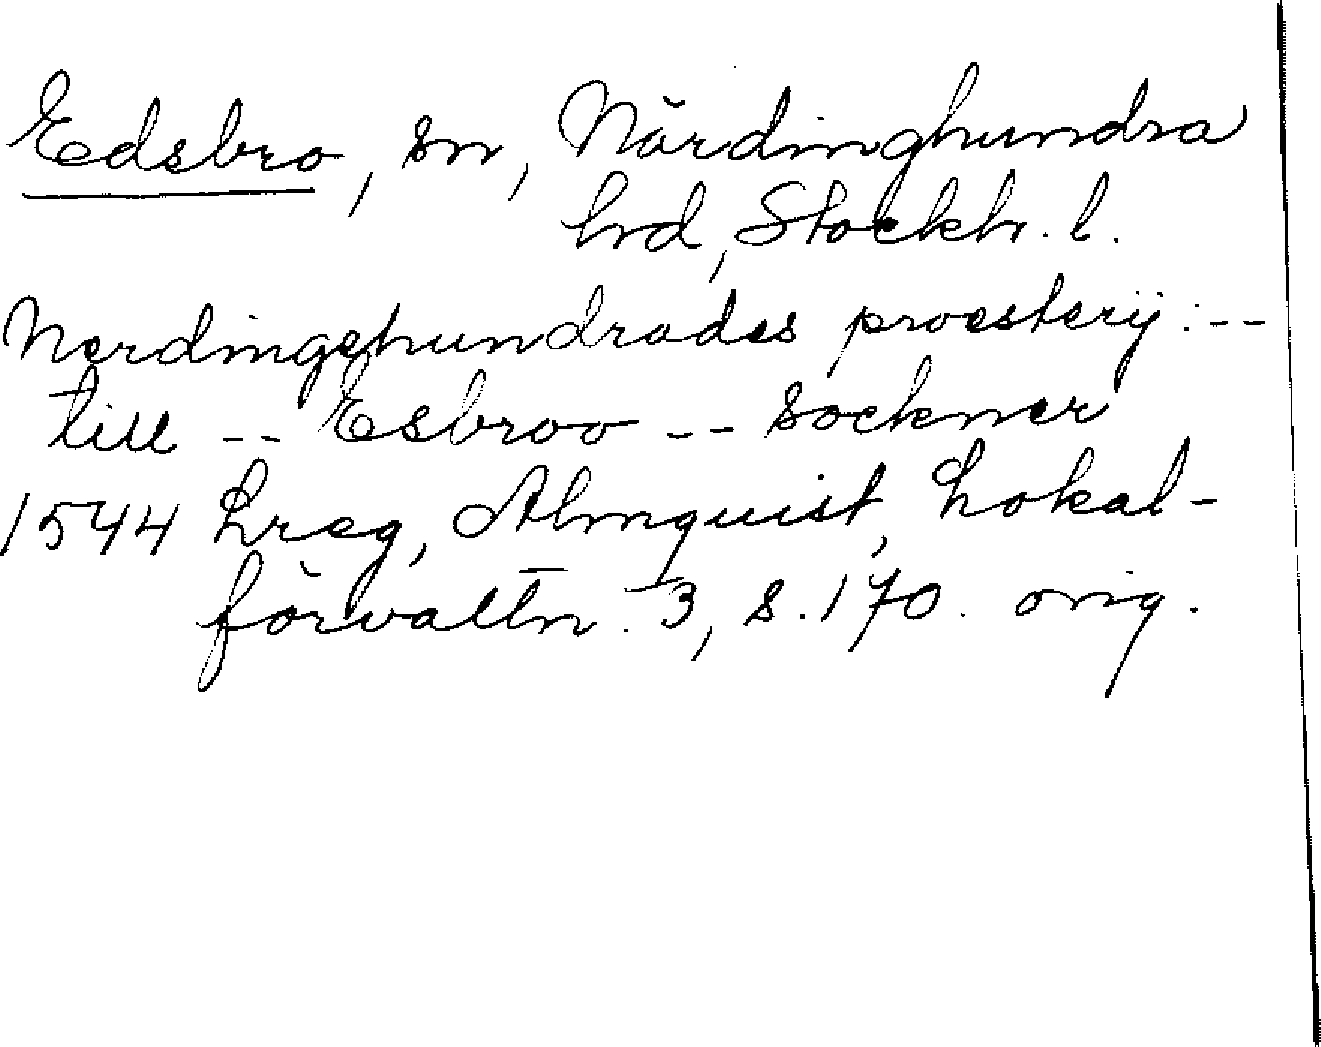 Edsbro, sn, Närdinghundra
hrd, Stockh. l.
Nerdingehundrades proesterij: --
till -- Esbroo -- Sockner
1544 Lreg, Almquist, Lokal-
förvaltn. 3, s. 170. orig.